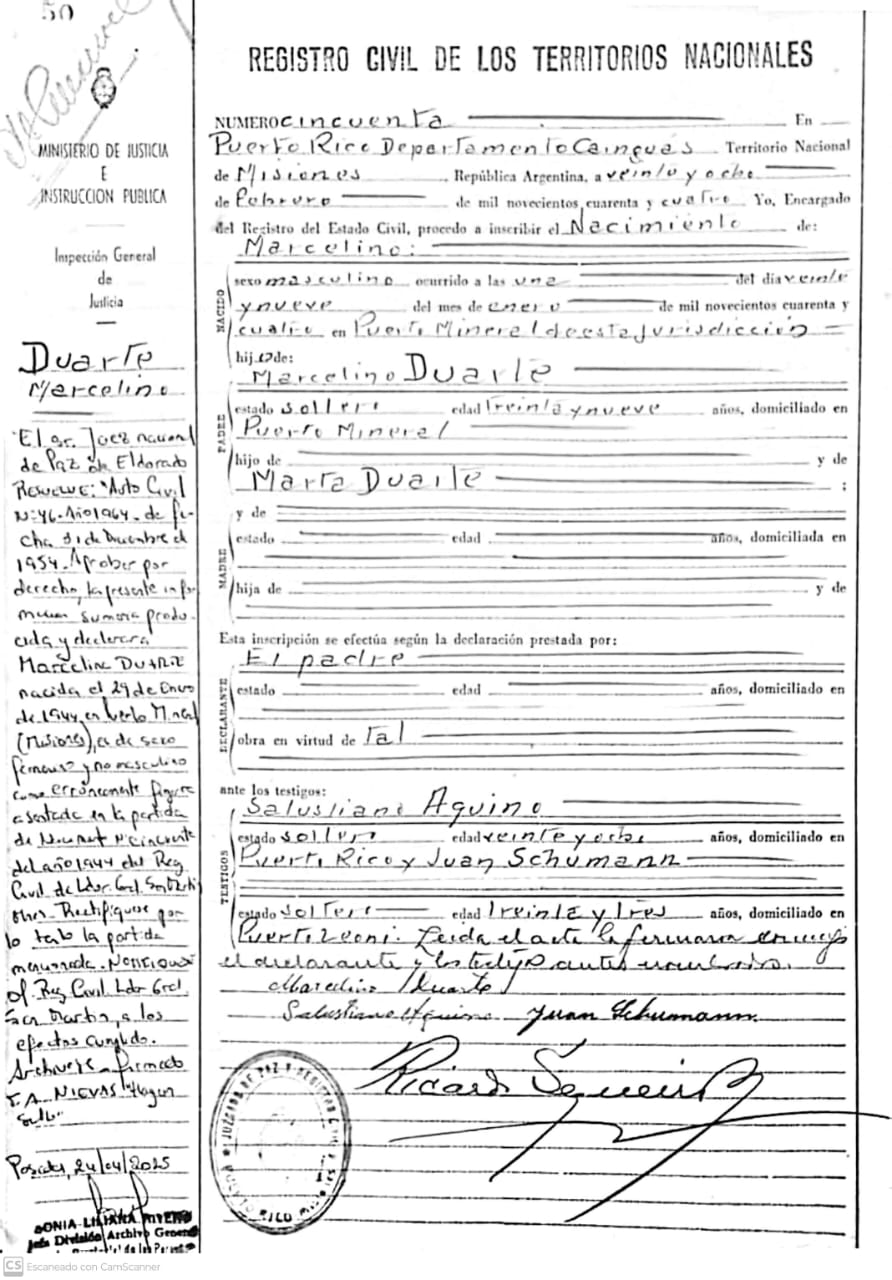 50
MINISTERIO DE JUSTICIA
E
INSTRUCCION PUBLICA
Inspección General
de
Justicia
Duarte
Marcelino
"El sr. Juez nacional
de Paz de Eldorado
RESUELVE: "Auto Civil
N: 46 - Año 1964 - de fe-
cha 31 de Diciembre de
1954. Aprobar por
derecho, la presente infor
macion sumaria produ-
cida y declarar a
Marcelina DUARTE
nacida el 29 de Enero
de 1944, en Puerto Mineral
(Misiones), es de sexo
femenino y no masculino
como erróneamente figura
asentada en la partida
de Nacimt N° cincuenta
del año 1944 del Reg
Civil de Ldor. Gral. San Martin
Rectifíquese por
lo tanto la partida
mencionada. NOTIFIQUESE
al Reg Civil Ldor Gral.
San Martin, a los
efectos cumplido.
Archivese - firmado
NIEVAS "Hay un
sello"
Posadas, 24/04/2025
SONIA LILIANA RIVERO
Jefa División Archivo General
REGISTRO CIVIL DE LOS TERRITORIOS NACIONALES
NUMERO cincuenta En
Puerto Rico Departamento Cainguás Territorio Nacional
de Misiones República Argentina, a veinte y ocho
de Febrero de mil novecientos cuarenta y cuatro Yo, Encargado
del Registro del Estado Civil, procedo a inscribir el Nacimiento de:
Marcelino:
NACIDO
sexo masculino ocurrido a las una del dia veinte
y nueve del mes de enero de mil novecientos cuarenta y
cuatro en Puerto Mineral de esta Jurisdicción
hijo de:
Marcelino Duarte
PADRE
estado soltero edad treinta y nueve años, domiciliado en
Puerto Mineral
hijo de y de
Marta Duarte ;
y de
MADRE
estado edad años, domiciliada en
hija de y de
Esta inscripción se efectúa según la declaración prestada por:
El padre
DECLARANTE
estado edad años, domiciliado en
obra en virtud de tal
ante los testigos:
Salustiano Aquino
TESTIGOS
estado soltero edad veinte y ocho años, domiciliado en
Puerto Rico y Juan Schumann
estado soltero edad treinta y tres años, domiciliado en
Puerto Leoni. Leida el acta la firmaron conmigo
el declarante y los testigos antes nombrados.
Marcelino Duarte
Salustiano Aquino Juan Schumann
JUZGADO DE PAZ Y REGISTRO CIVIL
RICO
CS Escaneado con CamScanner